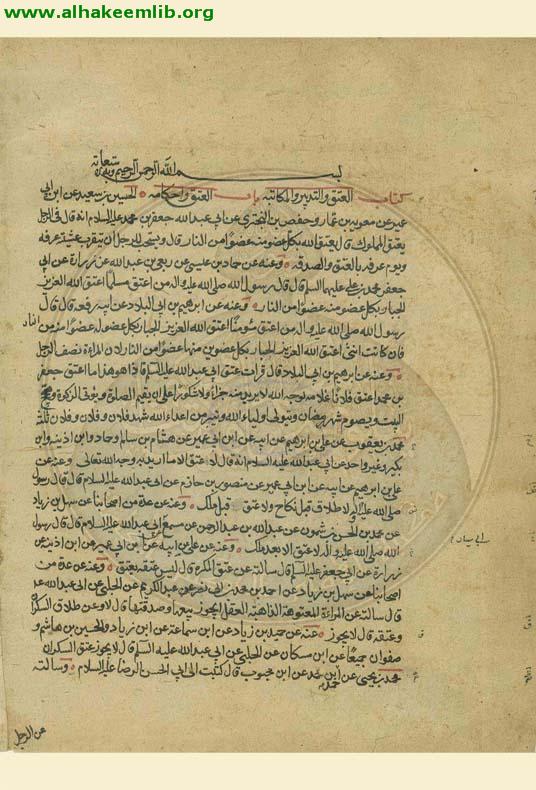 www.alhakeemlib.org
بسم الله الرحمن الرحيم وبه ثقتي
كتاب العتق والتدبير والمكاتبة باب العتق واحكامه الحسين بن سعيد عن ابن ابي
عمير عن معوية بن عمار وحفص بن البختري عن ابي عبد الله جعفر بن محمد عليه السلام انه قال في الرجل
يعتق المملوك قال يعتق الله بكل عضو منه عضوا من النار قال ويستحب للرجل ان يتقرب عشية عرفة
ويوم عرفة بالعتق والصدقة وعنه عن حماد بن عيسى عن ربعي بن عبد الله عن زرارة عن ابي
جعفر محمد بن علي عليهما السلام قال قال رسول الله صلى الله عليه واله من اعتق مسلما اعتق الله العزيز
الجبار بكل عضو منه عضوا من النار وعنه عن ابرهيم بن ابي البلاد عن ابيه رفعه قال قال
رسول الله صلى الله عليه واله من اعتق مؤمنا اعتق الله العزيز الجبار بكل عضو له عضوا منه من النار
فان كانت انثى اعتق الله العزيز الجبار بكل عضوين منها عضوا من النار لان المراة نصف الرجل
وعنه عن ابرهيم بن ابي البلاد قال قرات عتق ابي عبد الله عليه السلام فاذا هو هذا ما اعتق جعفر
بن محمد اعتق فلانا غلامه لوجه الله لا يريد منه جزاء ولا شكورا على ان يقيم الصلوة ويؤتي الزكوة ويحج
البيت ويصوم شهر رمضان ويتولى اولياء الله ويتبرء من اعداء الله شهد فلان وفلان وفلان ثلثة
محمد بن يعقوب عن علي بن ابرهيم عن ابيه عن ابن ابي عمير عن هشام بن سالم وحماد وابن اذينة وابن
بكير وغير واحد عن ابي عبد الله عليه السلام انه قال لا عتق الا ما اريد به وجه الله تعالى وعنه عن
علي بن ابرهيم عن ابيه عن ابن ابي عمير عن منصور بن حازم عن ابي عبد الله عليه السلام قال قال رسول الله
صلى الله عليه واله لا طلاق قبل نكاح ولا عتق قبل ملك وعنه عن عدة من اصحابنا عن سهل بن زياد
عن محمد بن الحسن بن شمون عن عبد الله بن عبد الرحمن عن مسمع ابي عبد الله عليه السلام قال قال رسول
الله صلى الله عليه واله لا عتق الا بعد ملك وعنه عن علي عن ابيه عن ابن ابي عمير عن ابن اذينة عن
زرارة عن ابي جعفر عليه السلام قال سالته عن عتق المكره قال ليس عتقه بعتق وعنه عن عدة من
اصحابنا عن سهل بن زياد عن احمد بن محمد بن ابي نصر عن عبد الكريم عن الحلبي عن ابي عبد الله عد
قال سالته عن المراة المعتوهة الذاهبة العقل ايجوز بيعها وصدقتها قال لا وعن طلاق السكران
وعتقه قال لا يجوز وعنه عن حميد بن زياد عن ابن سماعة عن ابن زياد والحسين بن هاشم و
صفوان جميعا عن ابن مسكان عن الحلبي عن ابي عبد الله عليه السلام قال لا يجوز عتق السكران
محمد بن يحيى عن ابن محمد عن ابن محبوب قال كتبت الى ابي الحسن الرضا عليه السلام وسالته
عن الرجل